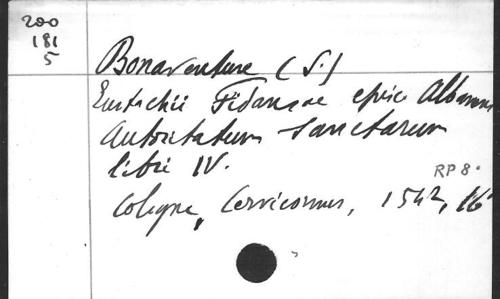 200
181
5
Bonaventure (S.)
Eustachii Fidansae epice Albanens
Autoritatum Sanctarum
libri IV.
RP 8°
Cologne, Cervicornus, 1542, 16°